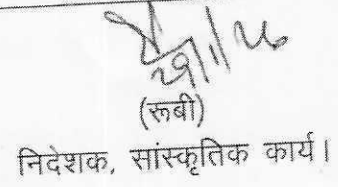 (रूबी)
निदेशक, सांस्कृतिक कार्य।